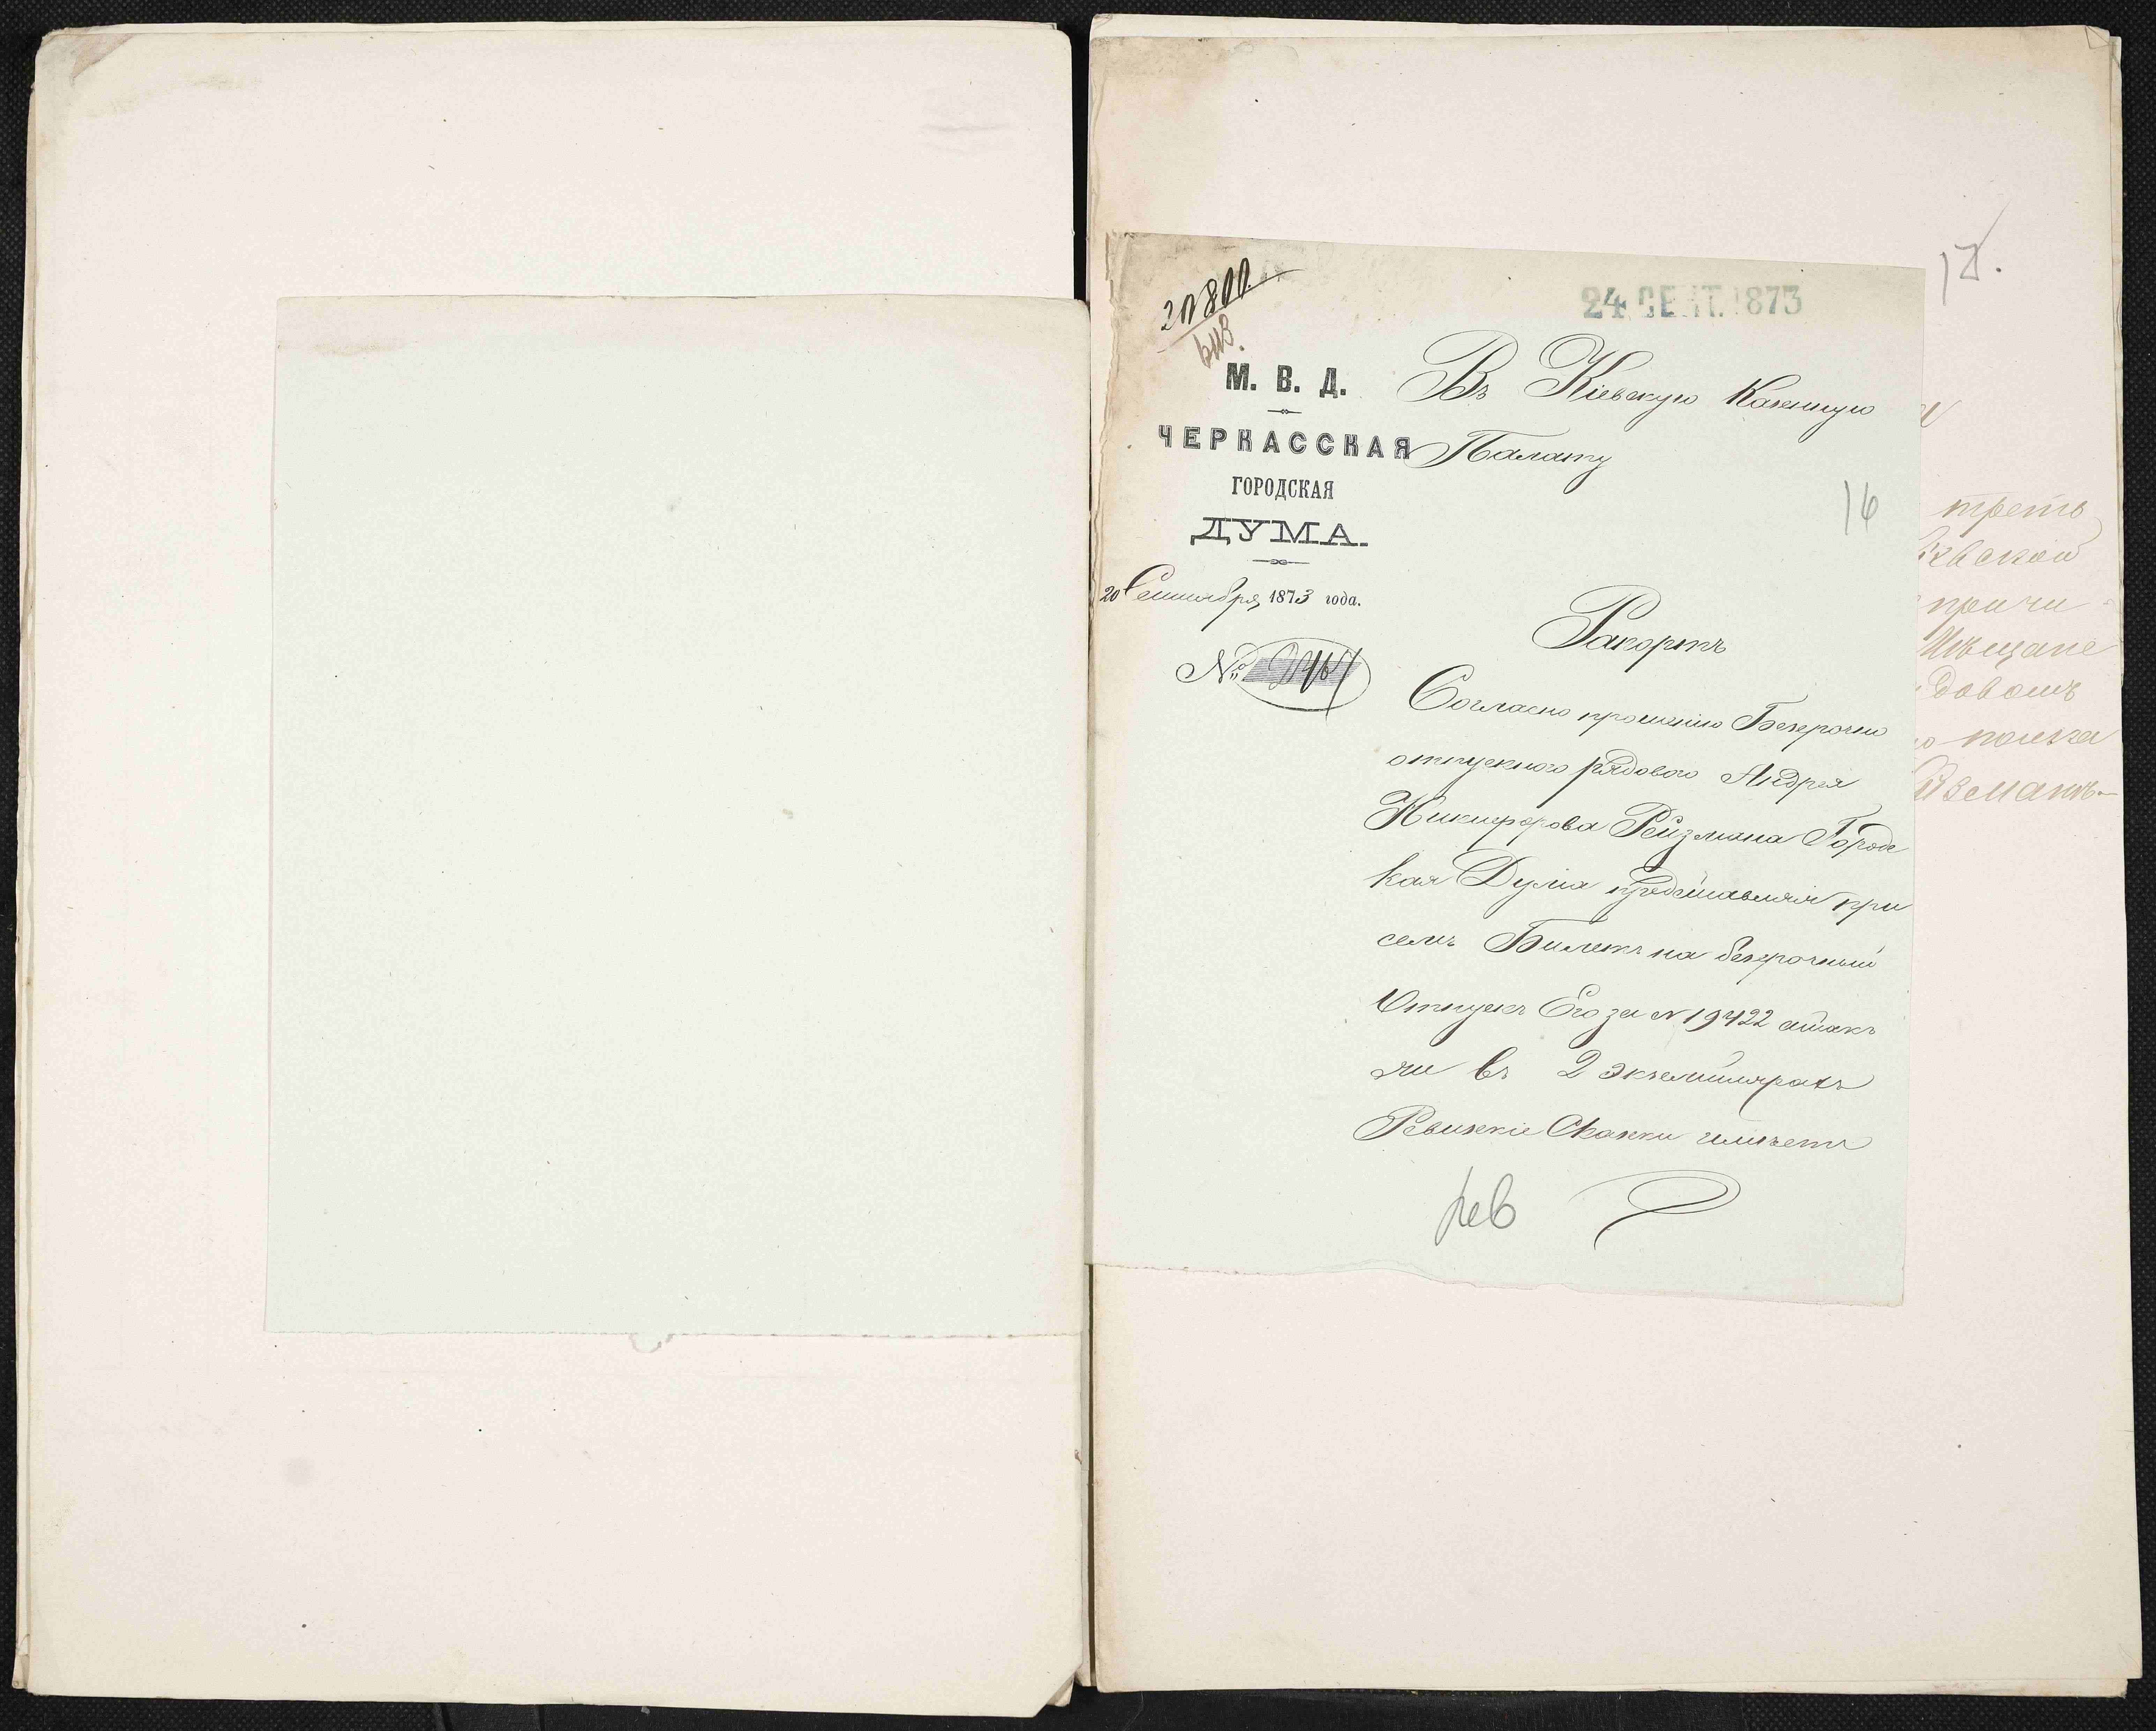 24 СЕНТ. 1873
М. В. Д.
ЧЕРКАССКАЯ
ГОРОДСКАЯ
ДУМА.
20 Сентября 1873 года.
№
Въ Кіевскую Казенную
Палату
16
Рапортъ
Согласно прошенію Безсрочно
отпускного рядового Андрея
Никифорова Рейзмана Городс
кая Дума представляя при
семъ Билетъ на безсрочный
Отпускъ Его за № 19422 атакъ
же въ 2 экземплярахъ
Ревизкіе Сказки имѣетъ
рев
треть
причи
Мѣщане
полка